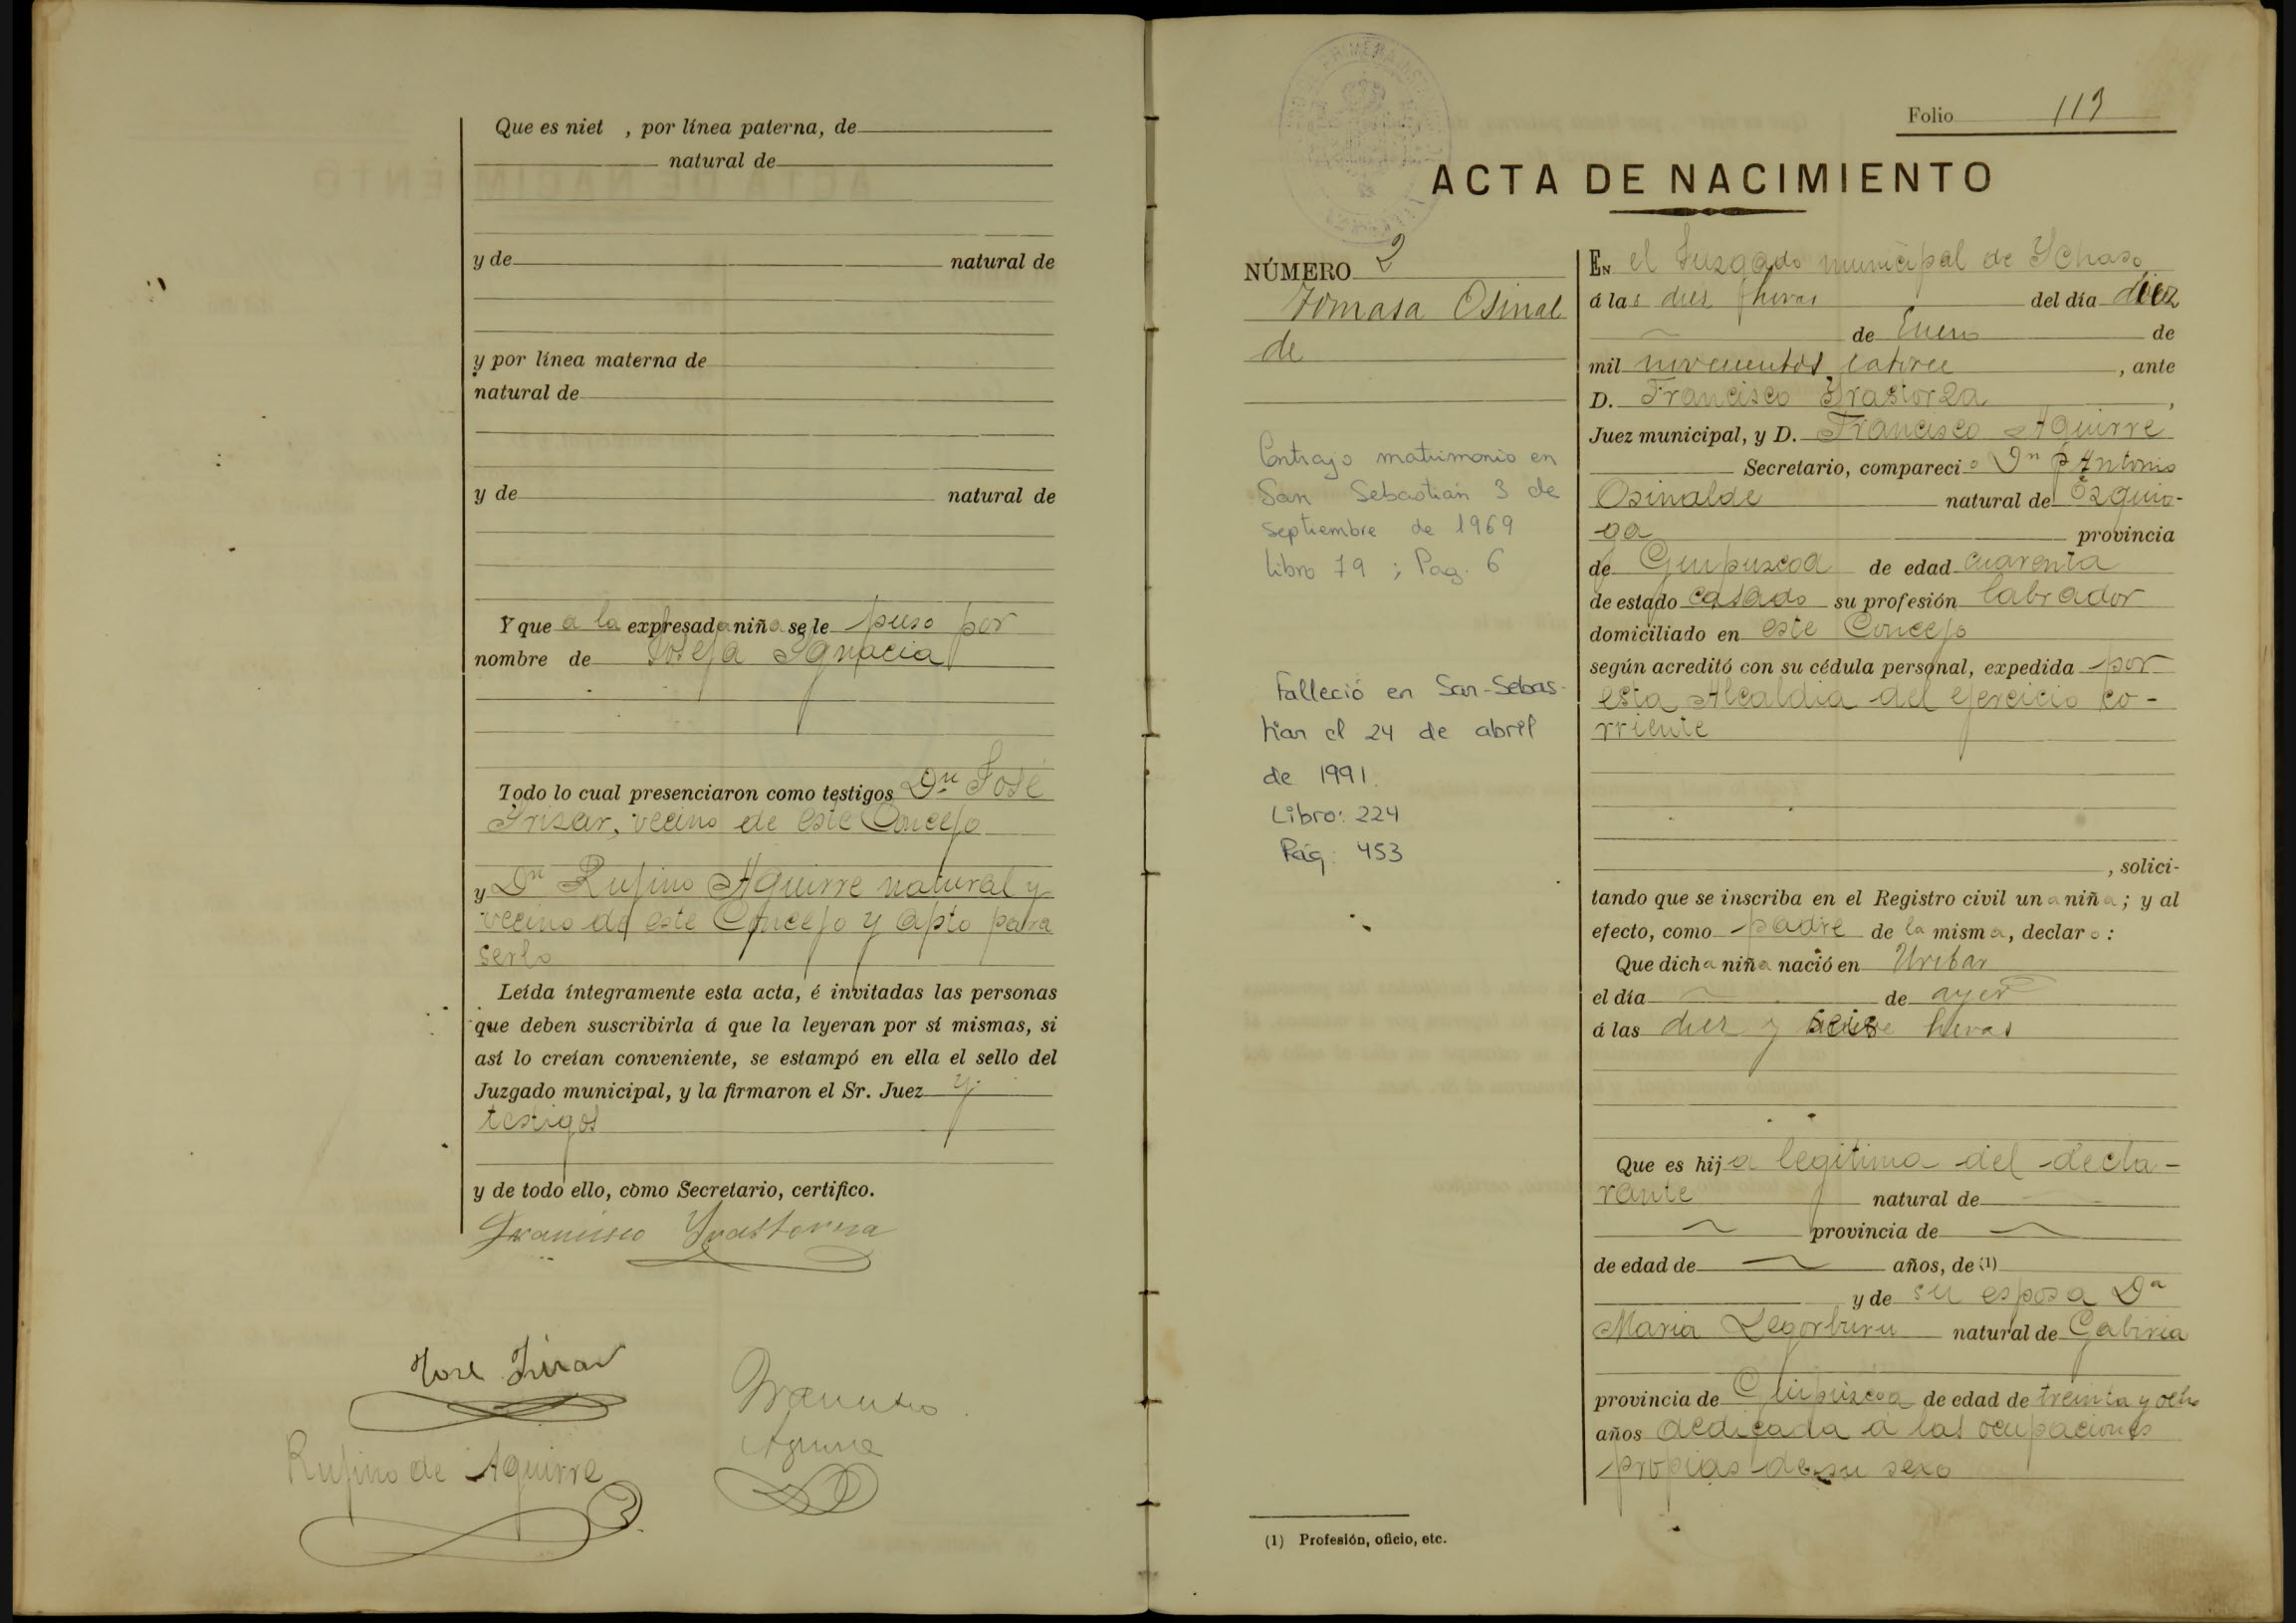 Que es niet , por línea paterna, de
natural de
y de natural de
y por línea materna de
natural de
y de natural de
Y que a la expresada niña se le puso por
nombre de Josefa Ygnacia
Todo lo cual presenciaron como testigos Dn José
Yrizar, vecino de este Concejo
y Dn Rufino Aguirre natural y
vecino de este Concejo y apto para
serlo
Leída íntegramente esta acta, é invitadas las personas
que deben suscribirla á que la leyeran por sí mismas, si
así lo creían conveniente, se estampó en ella el sello del
Juzgado municipal, y la firmaron el Sr. Juez y
testigos
y de todo ello, como Secretario, certifico.
Francisco Yrastorza
José Yrizar
Francisco
Aguirre
Rufino de Aguirre
Folio 113
ACTA DE NACIMIENTO
NÚMERO 2
Tomasa Osinal
de
Contrajo matrimonio en
San Sebastián 3 de
Septiembre de 1969
Libro 79 ; Pag. 6
Falleció en San-Sebas-
tian el 24 de abril
de 1991.
Libro: 224
Pág: 453
EN el Juzgado municipal de Ychaso
á las diez horas del día diez
de Enero de
mil novecientos catorce, ante
D. Francisco Yrastorza,
Juez municipal, y D. Francisco Aguirre
Secretario, compareció Dn Antonio
Osinalde natural de Ezquio-
ga provincia
de Guipuzcoa de edad cuarenta
de estado casado su profesión labrador
domiciliado en este Concejo
según acreditó con su cédula personal, expedida por
esta Alcaldia del ejercicio co-
rriente
, solici-
tando que se inscriba en el Registro civil una niña; y al
efecto, como padre de la misma, declaro:
Que dicha niña nació en Uribar
el día de ayer
á las diez y horas
Que es hija legitima del decla-
rante natural de
provincia de
de edad de años, de (1)
y de su esposa Da
Maria Legorburu natural de Gabiria
provincia de Guipúzcoa de edad de treinta y ocho
años dedicada á las ocupaciones
propias de su sexo
(1) Profesión, oficio, etc.